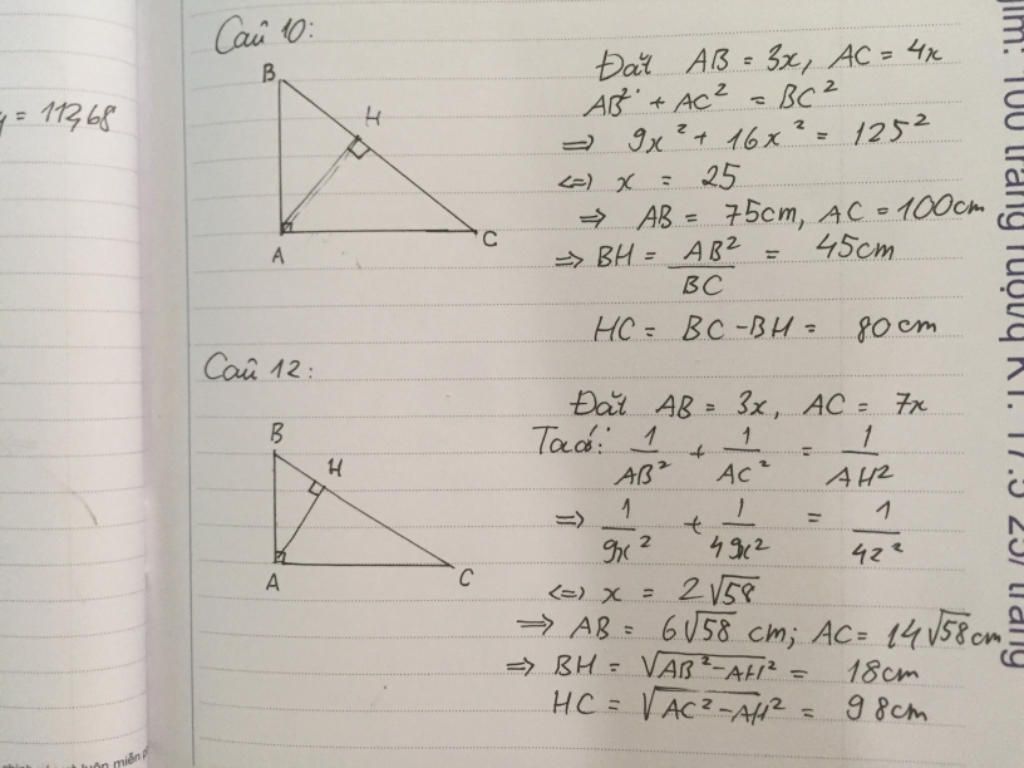 y = 112,68
Câu 10:
B
H
A
C
Đặt AB = 3x, AC = 4x
AB² + AC² = BC²
=> 9x² + 16x² = 125²
<=> x = 25
=> AB = 75cm, AC = 100cm
=> BH = AB²/BC = 45cm
HC = BC - BH = 80cm
Câu 12:
B
H
A
C
Đặt AB = 3x, AC = 7x
Ta có: 1/AB² + 1/AC² = 1/AH²
=> 1/9x² + 1/49x² = 1/42²
<=> x = 2√58
=> AB = 6√58 cm; AC = 14√58 cm
=> BH = √AB² - AH² = 18cm
HC = √AC² - AH² = 98cm
100 trang
KT: 17.5
25
trang
miễn